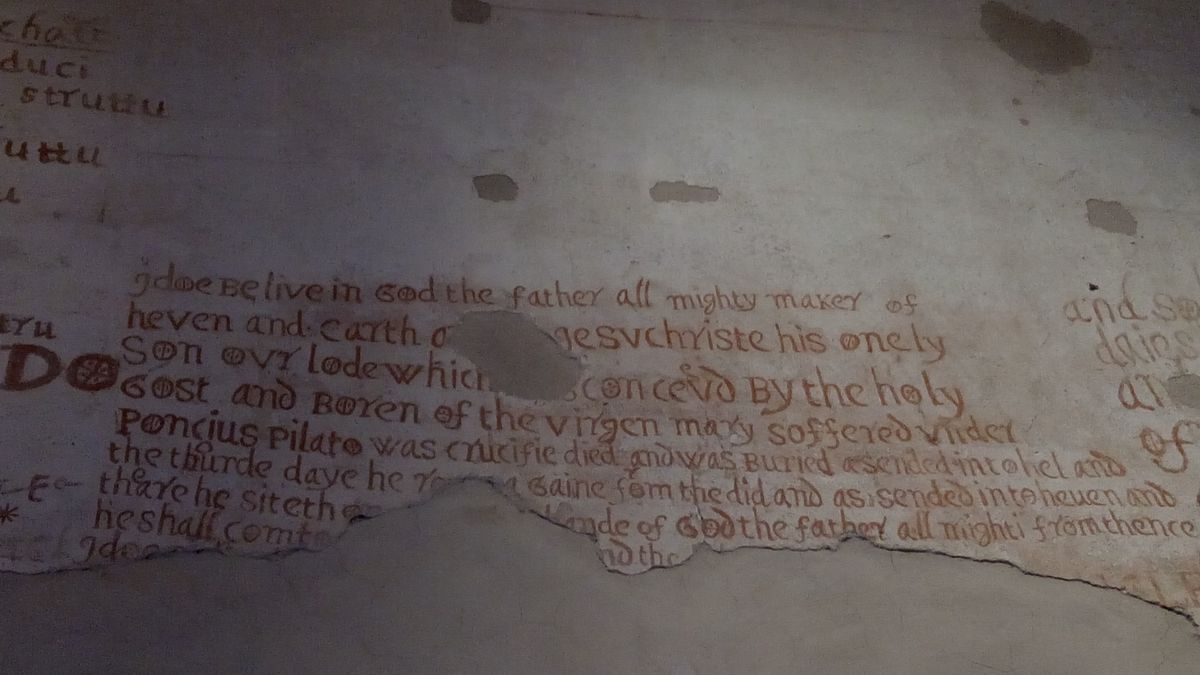 duci
struttu
uttu
tru
Do
gdoe Belive in God the father all mighty maker of
heven and earth gesuchriste his onely
Son ovr lode which concevd By the holy
Gost and Boren of the virgen mary soffered vnder
Poncius Pilato was crucifie died and was Buried asended into hel and
the thurde daye he a Gaine fom the did and as.sended into heuen and
thare he siteth hande of God the father all mighti from thence
he shall comte nd the
gdoe
and so
of